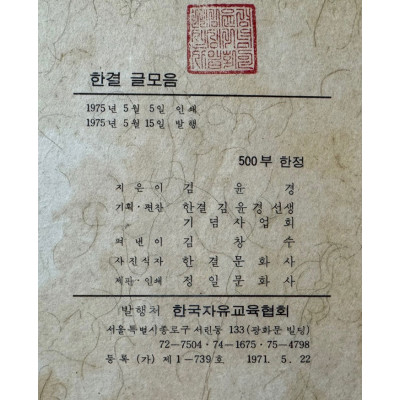 한결 글모음
1975년 5월 5일 인쇄
1975년 5월 15일 발행
500부 한정
지은이 김윤경
기획·편찬 한결 김윤경 선생
기념사업회
펴낸이 김창수
사진식자 한결문화사
제판·인쇄 정일문화사
발행처 한국자유교육협회
서울특별시종로구 서린동 133(광화문 빌딩)
72-7504·74-1675·75-4798
등록 (가) 제1-739호 1971. 5. 22